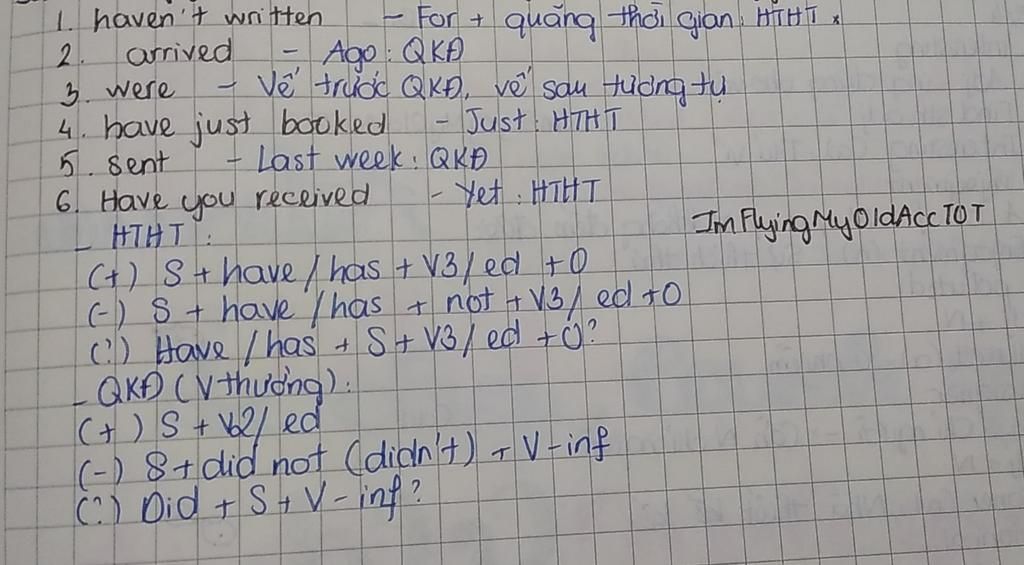 1. haven't written - For + quãng thời gian: HTHT *
2. arrived - Ago: QKĐ
3. were - Vế trước QKĐ, vế sau tương tự
4. have just booked - Just: HTHT
5. sent - Last week: QKĐ
6. Have you received - Yet: HTHT
ImFlyingMyOldAccTOT
- HTHT:
(+) S + have / has + V3/ ed + O
(-) S + have / has + not + V3/ ed + O
(?) Have / has + S + V3/ ed + O?
- QKĐ (V thường):
(+) S + V2/ ed
(-) S + did not (didn't) + V-inf
(?) Did + S + V-inf?